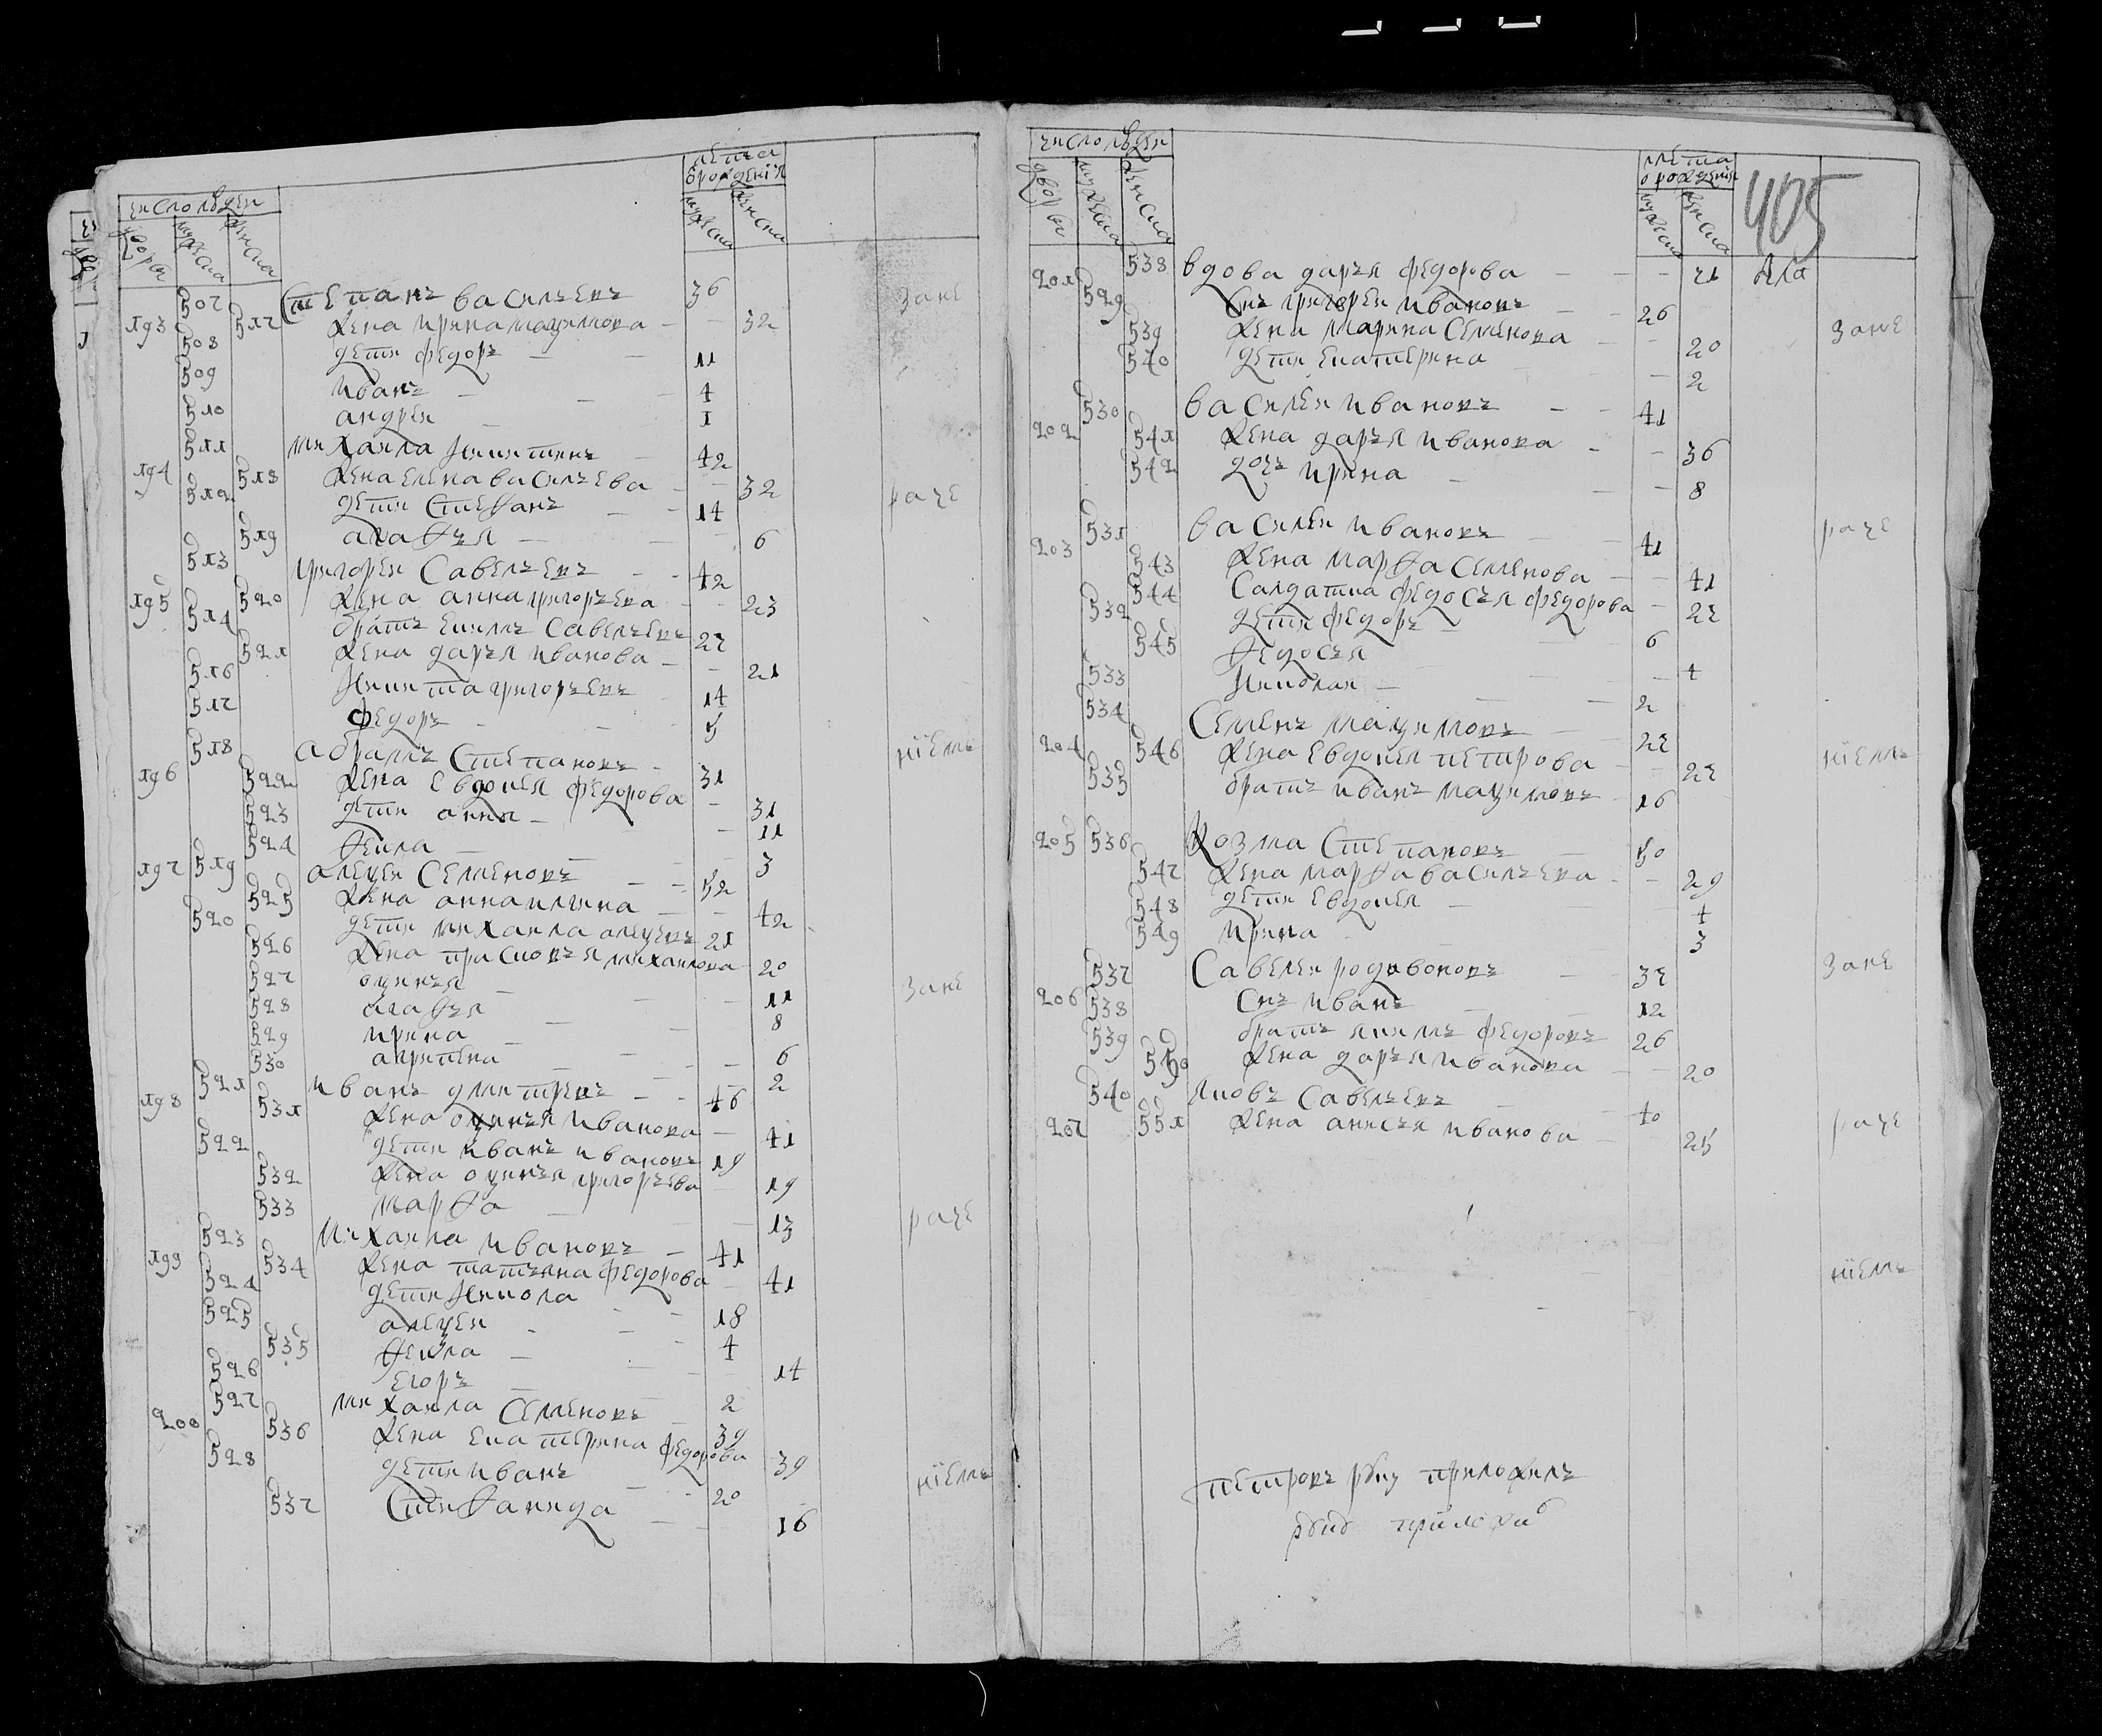 число людеи
лета
от рождения
дворы
мужеска
женска
мужеска
женска
193 507 Степанъ васильевъ 36 зане
517 жена ирина максимова 32
508 дети федоръ 11
509 иванъ 4
510 андреи 1
194 511 михаила никитинъ 42
518 жена елена васильева 32 раче
512 дети стефанъ 14
519 агафья 6
195 513 григореи савельевъ 42
520 жена анна григорьева 23
514 братъ екимъ савельевъ 27
521 жена дарья иванова 21
516 никита григорьевъ 14
517 федоръ 5
196 518 абрамъ степановъ 31 ніемъ
522 жена евдокея федорова 31
523 дети анна 11
524 фекла 3
197 519 алексеи семеновъ 52
525 жена анна ильина 42
520 дети михаила алексеевъ 21
526 жена прасковья михаилова 20
527 оксинья 11 зане
528 агафья 8
529 ирина 6
530 агрипена 2
198 521 иванъ дмитревъ 46
531 жена оксинья иванова 41
522 дети иванъ ивановъ 19
532 жена оксинья григорьева 19
533 марфа 13 раче
199 523 михаила ивановъ 41
534 жена татьяна федорова 41
524 дети никола 18
525 алексеи 4
535 фекла 14
526 егоръ 2
200 527 михаила семеновъ 39
536 жена екатерина федорова 39
528 дети иванъ 20 ніемъ
537 стифанида 16
число людеи
лета
от рождения
405
дворы
мужеска
женска
мужеска
женска
201 538 вдова дарья федорова 71
529 снъ григореи ивановъ 26
539 жена марина семенова 20 зане
540 дети екатерина 2
202 530 василеи ивановъ 41
541 жена дарья иванова 36
542 дочь ирина 8
203 531 василеи ивановъ 41 раче
543 жена марфа семенова 41
544 салдатка федосья федорова 27
532 дети федоръ 6
545 федосья 4
533 николаи 2
204 534 семенъ максимовъ 27
546 жена евдокея петрова 27 ніемъ
535 братъ иванъ максимовъ 16
205 536 козма степановъ 50
547 жена марфа васильева 29
548 дети евдокея 4
549 ирина 3
206 537 савелеи родивоновъ 37 зане
538 снъ иванъ 12
539 братъ якимъ федоровъ 26
550 жена дарья иванова 20
207 540 яковъ савельевъ 40
551 жена анисья иванова 25 раче
ніемъ
петровъ руку приложилъ